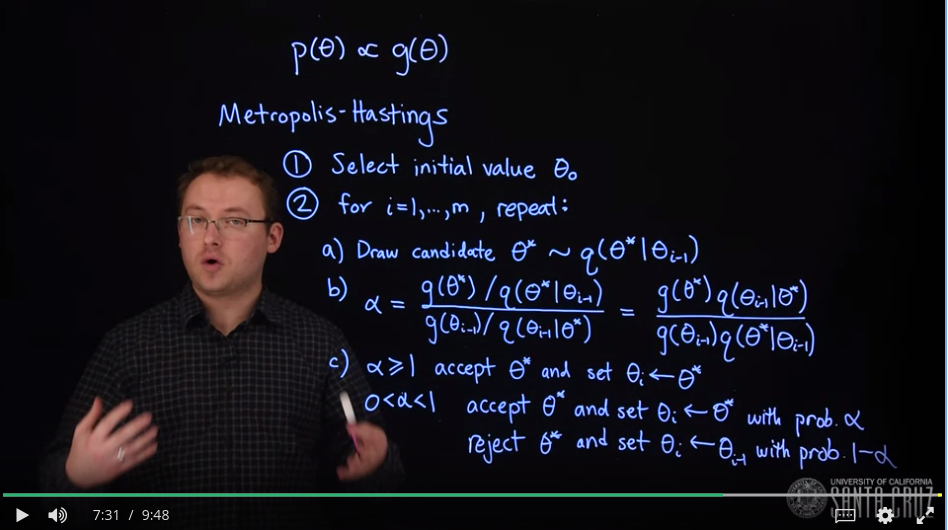 p(θ) ∝ g(θ)
Metropolis-Hastings
① Select initial value θ₀
② for i=1,...,m, repeat:
a) Draw candidate θ* ~ q(θ*|θᵢ₋₁)
b) α = g(θ*)/q(θ*|θᵢ₋₁) / g(θᵢ₋₁)/q(θᵢ₋₁|θ*) = g(θ*)q(θᵢ₋₁|θ*) / g(θᵢ₋₁)q(θ*|θᵢ₋₁)
c) α≥1 accept θ* and set θᵢ ← θ*
0<α<1 accept θ* and set θᵢ ← θ* with prob. α
reject θ* and set θᵢ ← θᵢ₋₁ with prob. 1-α
UNIVERSITY OF CALIFORNIA
SANTA CRUZ
7:31 / 9:48